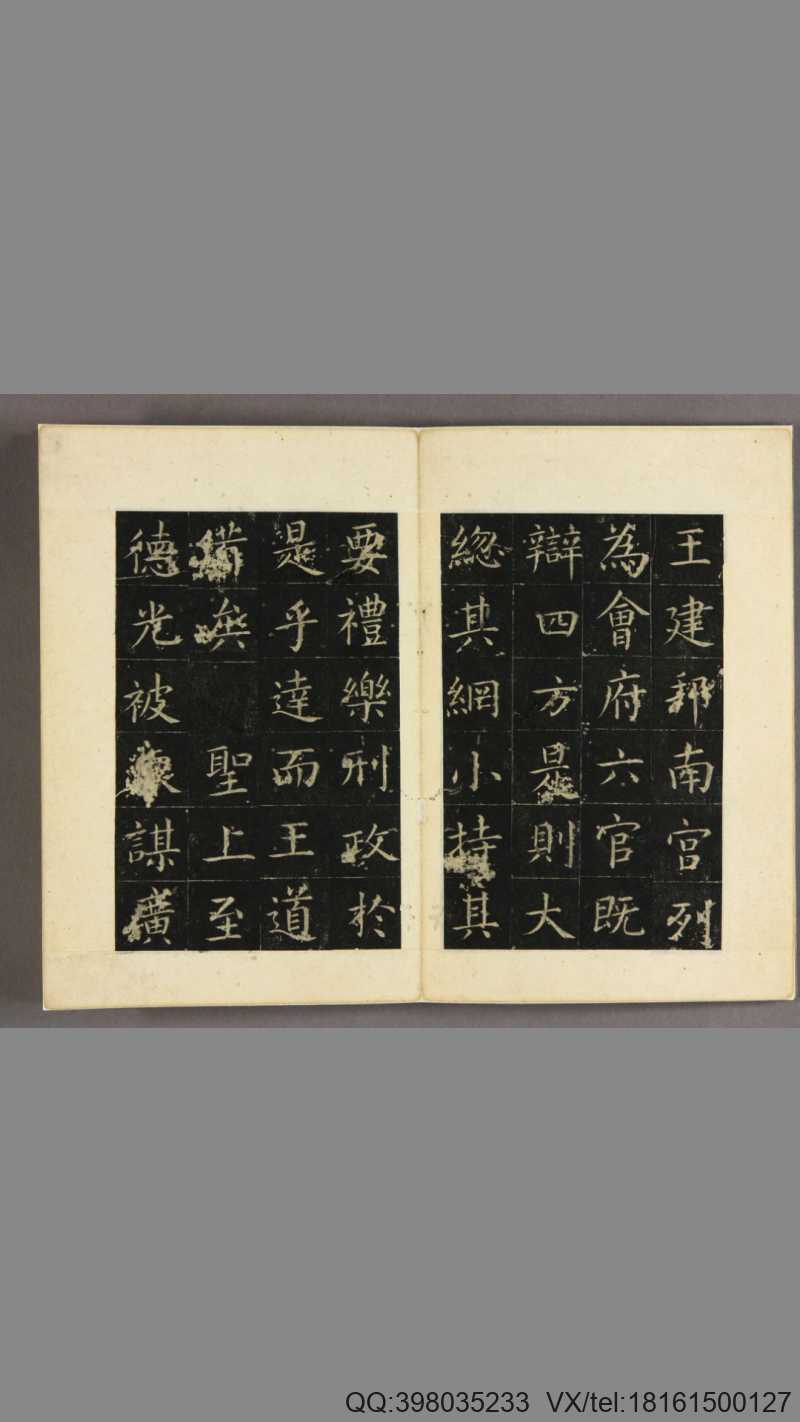 王建邦南宮列
為會府六官既
辯四方是則大
總其綱小持其
要禮樂刑政於
是乎達而王道
備矣聖上至
德光被 謀廣
QQ:398035233 VX/tel:18161500127